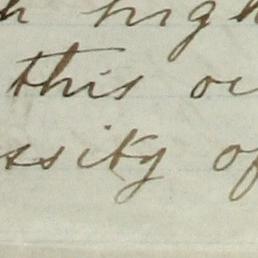 high
this
ssity of